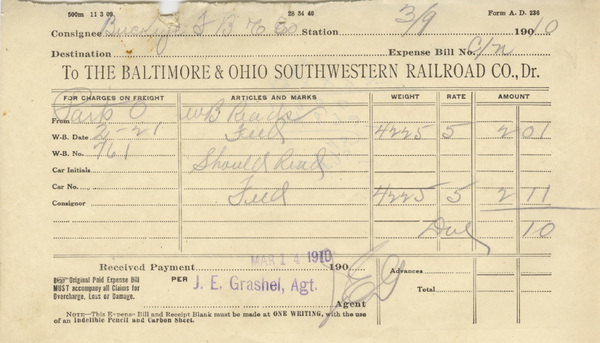 500m 11 3 09 28 34 46 Form A. D. 226
Consignee T B & Co Station 3/9 190 10
Destination Expense Bill No. C/n
To THE BALTIMORE & OHIO SOUTHWESTERN RAILROAD CO., Dr.
FOR CHARGES ON FREIGHT ARTICLES AND MARKS WEIGHT RATE AMOUNT
From Park O WB Reads
W-B. Date 2-21 Feed 4225 5 2 01
W-B. No. 761
Car Initials Should Read
Car No. Feed 4225 5 2 11
Consignor
Due 10
Received Payment MAR 14 1910 190 Advances
PER J. E. Grashel, Agt. Total
Original Paid Expense Bill
MUST accompany all Claims for
Overcharge, Loss or Damage.
Agent
NOTE—This Expense Bill and Receipt Blank must be made at ONE WRITING, with the use
of an Indelible Pencil and Carbon Sheet.